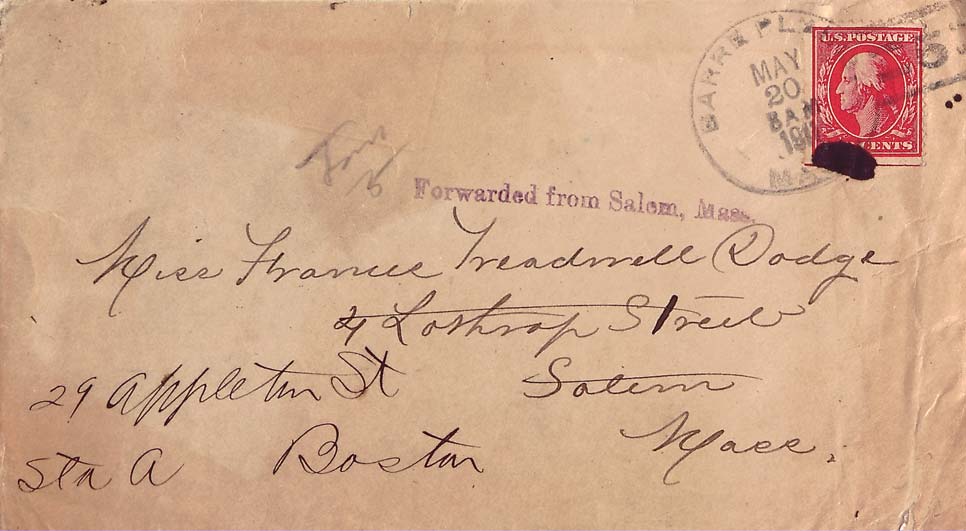 BARRE PLAINS
MAY
20
8 AM
MASS
U.S. POSTAGE
CENTS
5
Forwarded from Salem, Mass.
Miss Frances Treadwell Dodge
4 Lothrop Street
Salem
Mass.
29 Appleton St
Sta A Boston